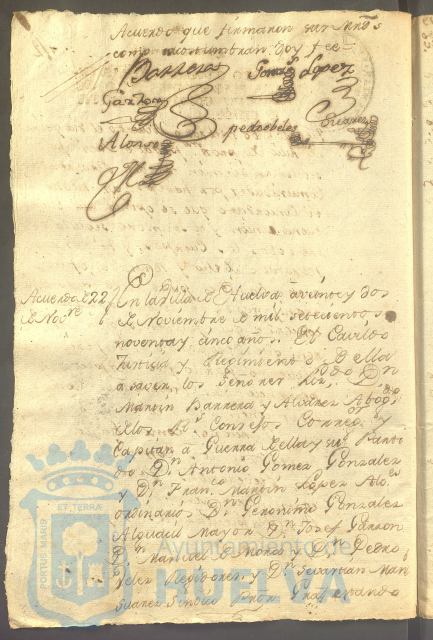 Acuerdo que firmaron sus Mrds
como acostumbran. Doy fee
Barrera
Gomez Lopez
Garzon
pedro belez
Suarez
Alonso
Acuerdo de 22
de Novre
En la Villa de Huelva a veinte y dos
de Noviembre de mil setecientos
noventa y cinco años. El Cavildo
Justicia y Regimiento de ella
a saver los Señores Lizdo Dn
Martin Barrera y Alvarez Abogdo
de los Rs Consejos Corregor y
Capitan a Guerra de ella y su Parti
do Dn Antonio Gomez Gonzalez
y Dn Franco Martin Lopez Alces
ordinarios Dn Geronimo Gonzalez
Alguacil Mayor Dn Josef Garzon
Dn Manuel Alonso y Dn Pedro
Velez Regidores y Dn Sevastian Marn
Suarez Sindico Pror Gral estando
PORTUS MARIS
ET TERRÆ
Ayuntamiento de
HUELVA